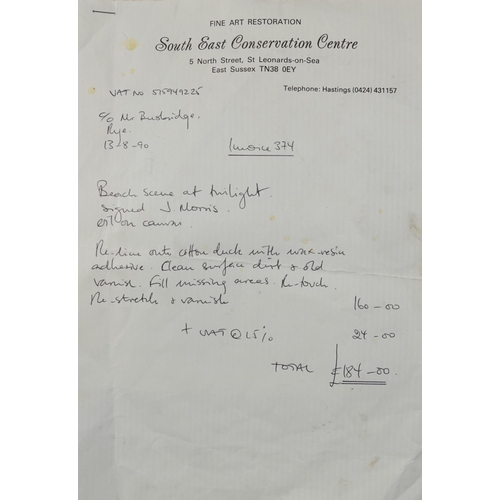 FINE ART RESTORATION
South East Conservation Centre
5 North Street, St Leonards-on-Sea
East Sussex TN38 0EY
Telephone: Hastings (0424) 431157
VAT NO 575949225
c/o Mr Busbridge.
Rye.
13-8-90
Invoice 374
Beach scene at twilight.
signed J. Morris.
oil on canvas.
Re-line onto cotton duck with wax-resin
adhesive. Clean surface dirt & old
varnish. Fill missing areas. Re-touch.
Re-stretch & varnish
160-00
+ VAT @ 15%
24-00
TOTAL £184-00.